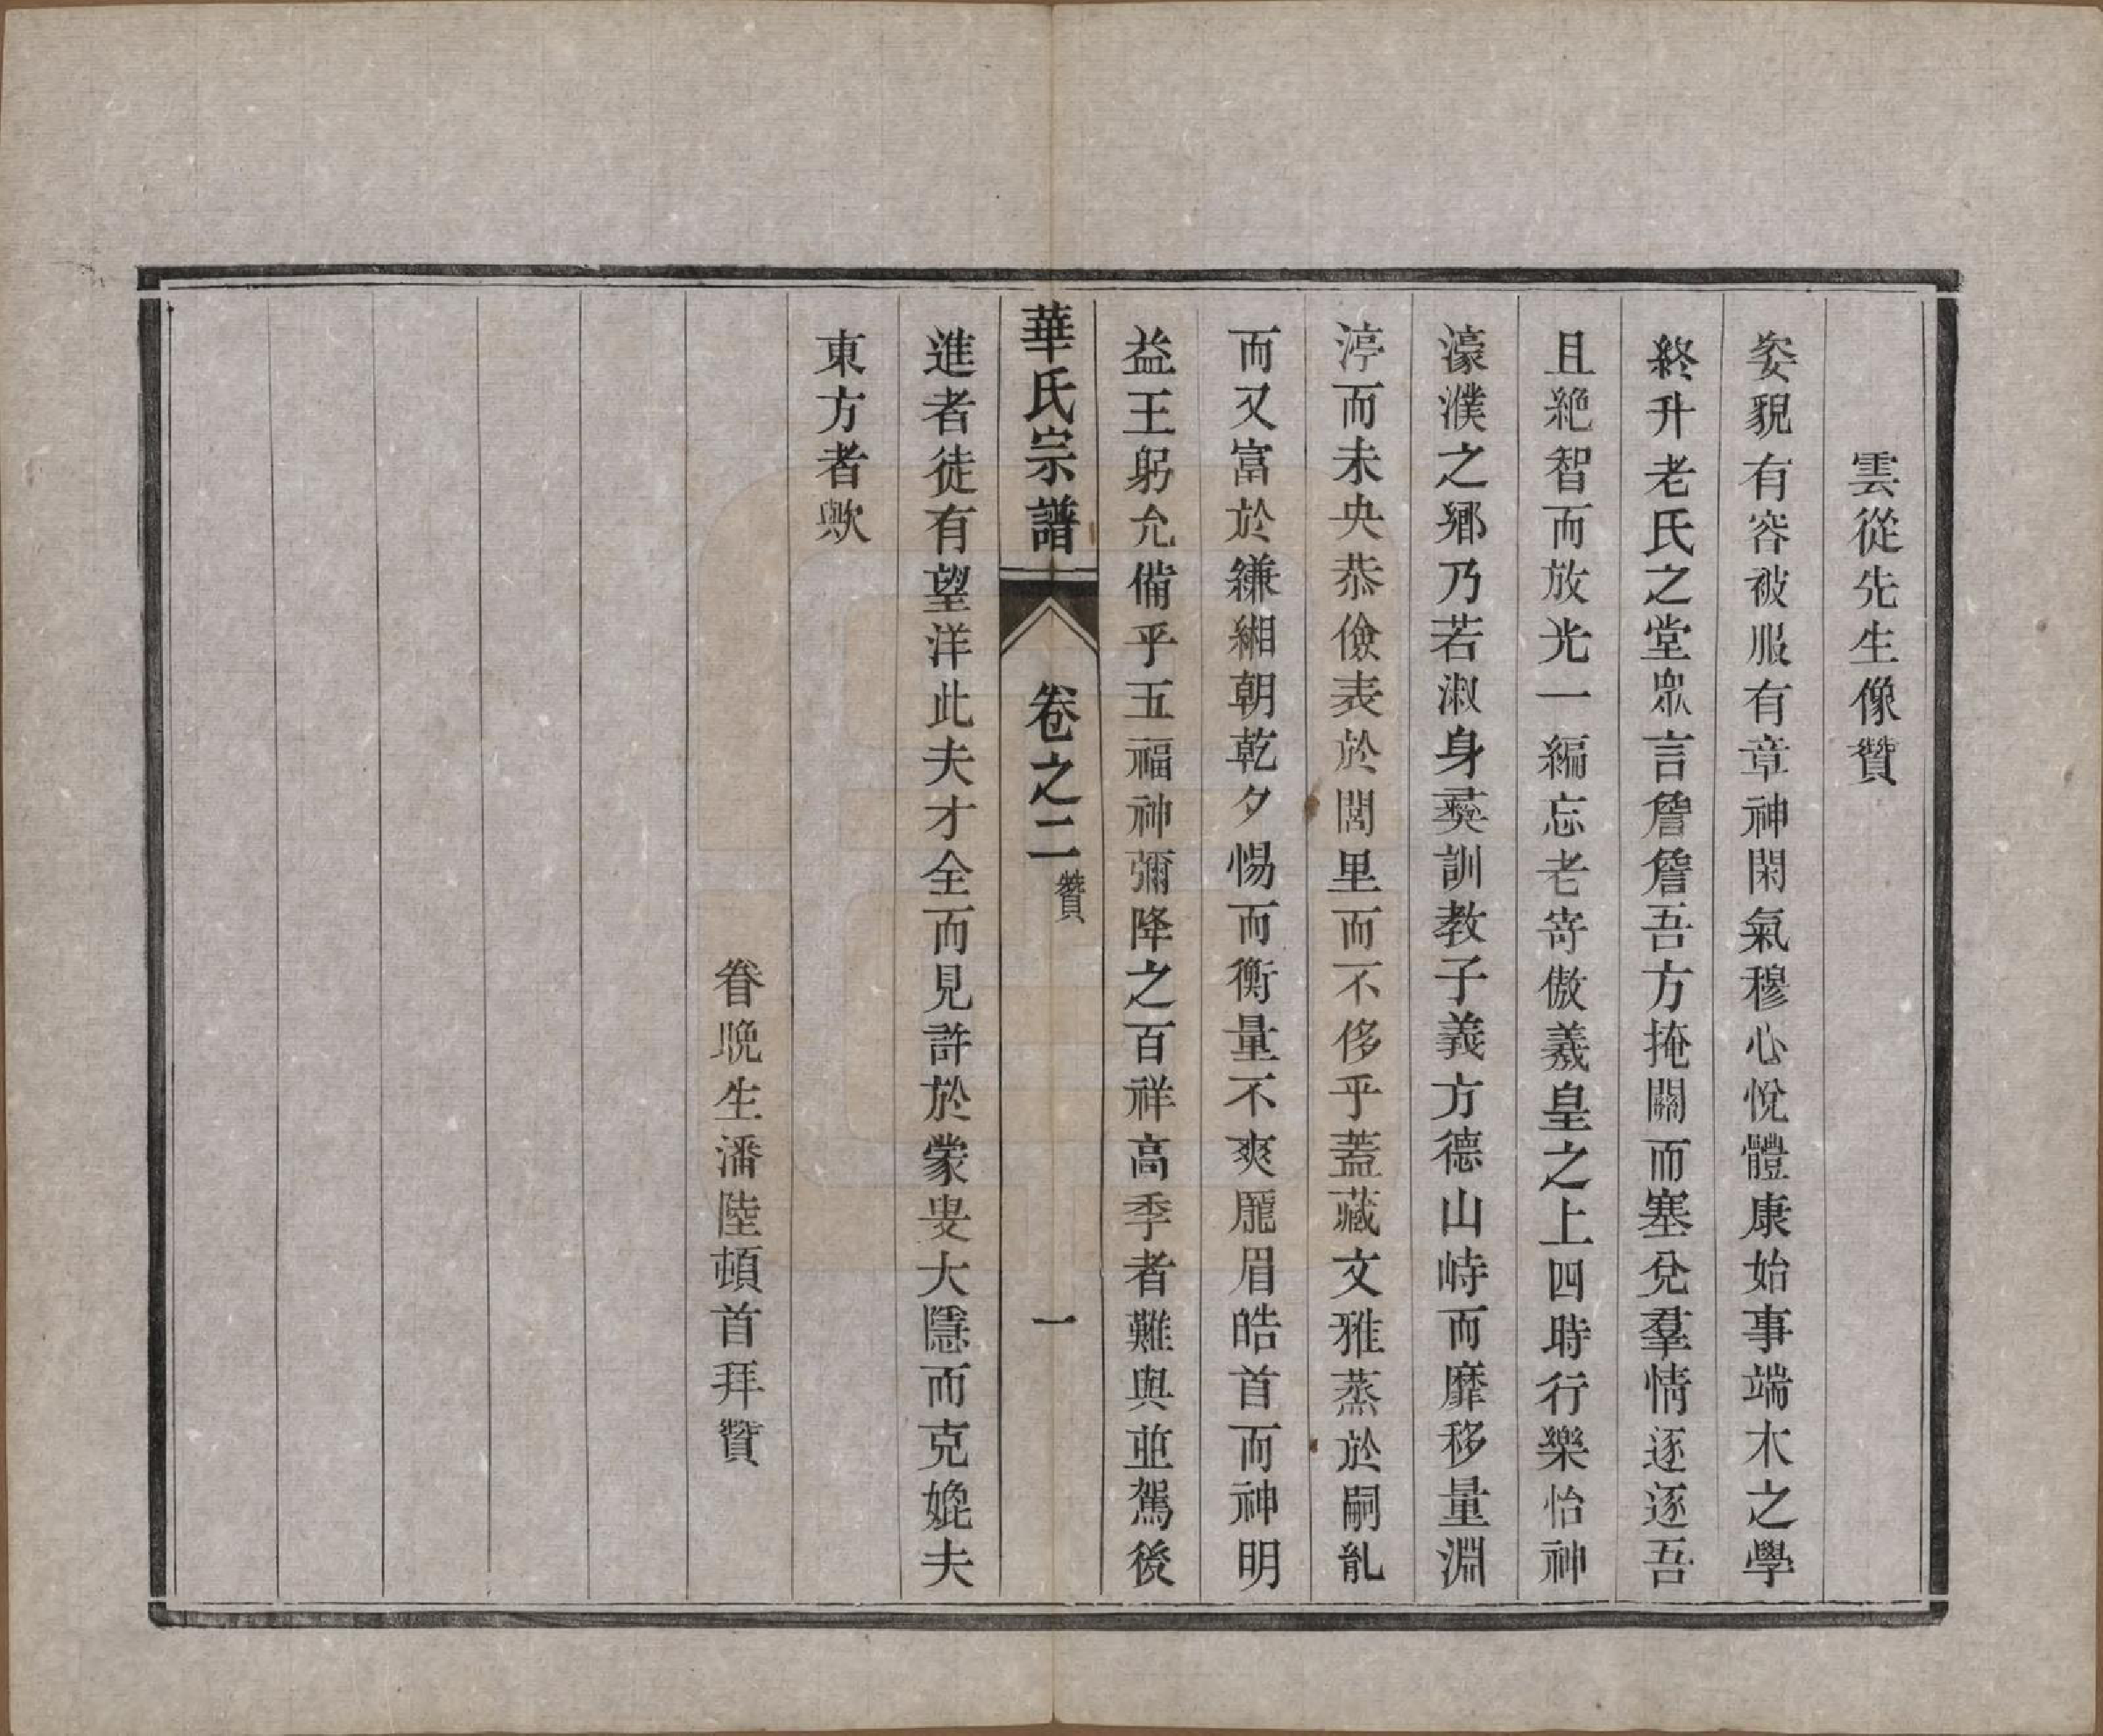 雲從先生像贊
姿貌有容被服有章神閑氣穆心悅體康始事端木之學
終升老氏之堂眾言詹詹吾方掩關而塞兌羣情逐逐吾
且絕智而放光一編忘老寄傲羲皇之上四時行樂怡神
濠濮之鄉乃若淑身彛訓教子義方德山峙而靡移量淵
渟而未央恭儉表於閭里而不侈乎蓋藏文雅蒸於嗣胤
而又富於縑緗朝乾夕惕而衡量不爽龐眉皓首而神明
益王躬允備乎五福神彌降之百祥高季者難與並駕後
華氏宗譜 卷之二 贊 一
進者徒有望洋此夫才全而見許於蒙叟大隱而克媲夫
東方者歟
眷晚生潘陸頓首拜贊